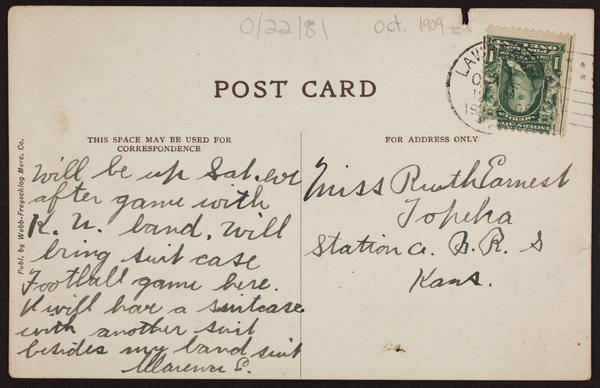 0/22/81
Oct. 1909
POST CARD
THIS SPACE MAY BE USED FOR
CORRESPONDENCE
FOR ADDRESS ONLY
Publ. by Webb-Freyschlag Merc. Co.
Will be up Sat. eve
after game with
K. U. band. Will
bring suit case
Football game here.
K will have a suitcase
with another suit
besides my band suit
Clarence E.
Miss Ruth Earnest
Topeka
Station A. B. R. S
Kans.
LAW
1
1